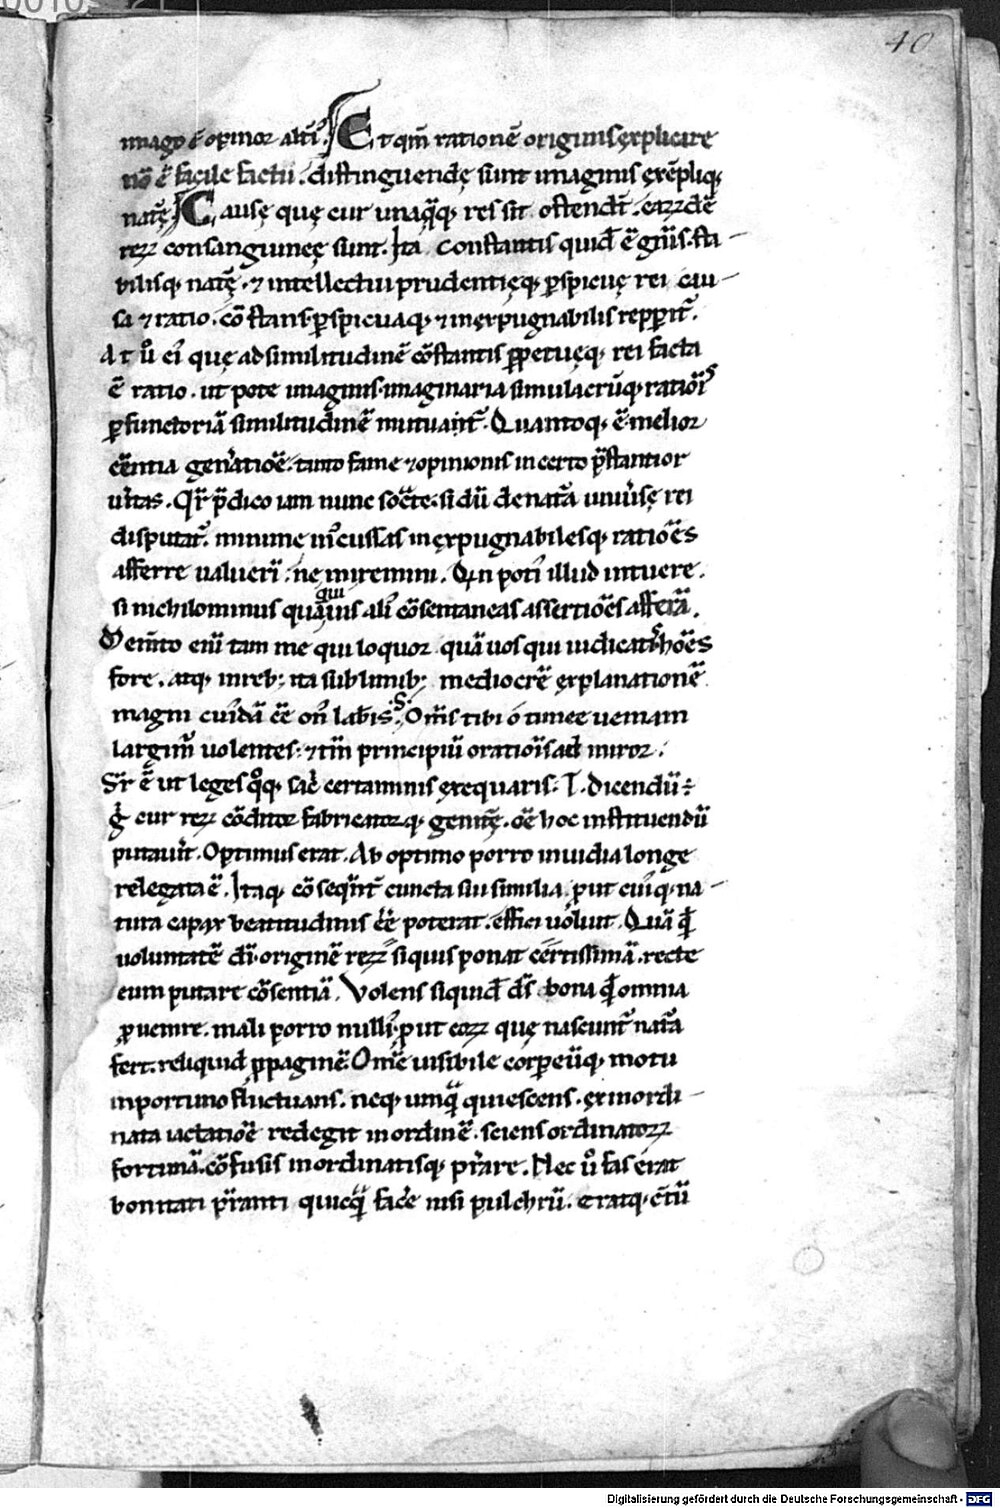 40
imago ē opinor alt̄i. Et qm̄ rationē originis ęxplicare
nō ē facile factu. distinguendę sunt imaginis ęxēpliq;
nat̄ę. Causę quę cur unaq̄q; res sit ostend̄t. earꝝdē
rerꝝ consanguineę sunt. Ita constantis quid̄ ḡnis. sta-
bilisq; nat̄ę. ⁊ intellectui prudentięq; ꝑspicuę rei cau-
sa ⁊ ratio. cōstans ꝑspicuaq; ⁊ inęxpugnabilis repperit̄.
At ů ei quę ad similitudinē cōstantis ꝑpetuęq; rei facta
ē ratio. ut pote imaginis. imaginaria simulacrūq; ratiōis
ꝑfunctoriā similitudinē mutuant̄. Quantoq; ē melior
cēntia gen̄atiōe. tanto fame ⁊ opinionis incerto p̄stantior
ūitas. Qr̄ p̄dico iam nunc socr̄te. si dū de nat̄a uniūsę rei
disputat̄. minime inc̄ussas inęxpugnabilesq; ratiōes
afferre ualuerī. ne miremini. Qin poti' illud intuere.
si nichilominus quā qui uis ali' cōsentaneas assertiōes afferā.
Mem̄to enī tam me qui loquor quā uos qui iudicatis hōes
fore. atq; in reb; ita sublimib; mediocrē ęxplanationē
magni cui'dā ēe on' labis. S. Om̄s tibi o timee ueniam
largim̄ uolentes. ⁊ tm̄ principiū oratiōis admiror.
Sr̄ ē ut leges q̊q; sac̄ certaminis ęxequaris. T. Dicendū
ḡ cur rerꝝ cōditor fabricatorq; genit̄ę. ōe hoc instituendū
putauīt. Optimus erat. Ab optimo porro inuidia longe
relegata ē. Itaq; cōseqn̄t cuncta sui similia. put cui'q; na-
tura capax beatitudinis ēe poterat. effici uoluit. Quā q̄d
uoluntatē dī. originē rerꝝ siquis ponat cērtissimā. recte
eum putare cōsentiā. Volens siquid̄ ds̄ bona q̄d omnia
ꝓuenire. mali porro nulli'. put eorꝝ quę nascunt̄ nat̄a
fert. reliquid ꝓpaginē. Om̄e uisibile corꝑeūq; motu
inportuno fluctuans. neq; umq̄ quiescens. ex inordi-
nata iactatiōe redegit in ordinē. sciens ordinatorꝝ
fortunā. cōfusis inordinatisq; p̄stare. Nec ů fas erat
bonitati p̄stanti quicq̄ facē nisi pulchrū. eratq; cētū
Digitalisierung gefördert durch die Deutsche Forschungsgemeinschaft - DFG